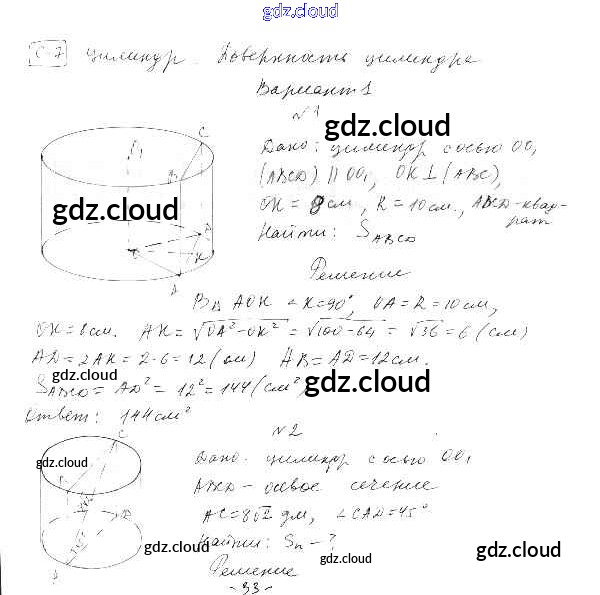 gdz.cloud
С-7 Цилиндр. Поверхность цилиндра
Вариант 1
№1
gdz.cloud
Дано: цилиндр с осью OO₁
(ABCD) || OO₁, OK ⊥ (ABC),
OK = 8 см, R = 10 см., ABCD-квад-
рат
Найти: S ABCD
gdz.cloud
Решение
В △ AOK ∠K=90°, OA=R=10см,
OK=8см. AK = √OA²-OK² = √100-64 = √36 = 6 (см)
AD=2AK=2·6=12(см) AB=AD=12см.
S ABCD = AD² = 12² = 144 (см²)
gdz.cloud
gdz.cloud
Ответ: 144 см²
№2
Дано: цилиндр с осью OO₁
gdz.cloud
gdz.cloud
ABCD - осевое сечение
AC=8√2 дм, ∠CAD=45°
Найти: Sп - ?
gdz.cloud
gdz.cloud
Решение
-33-